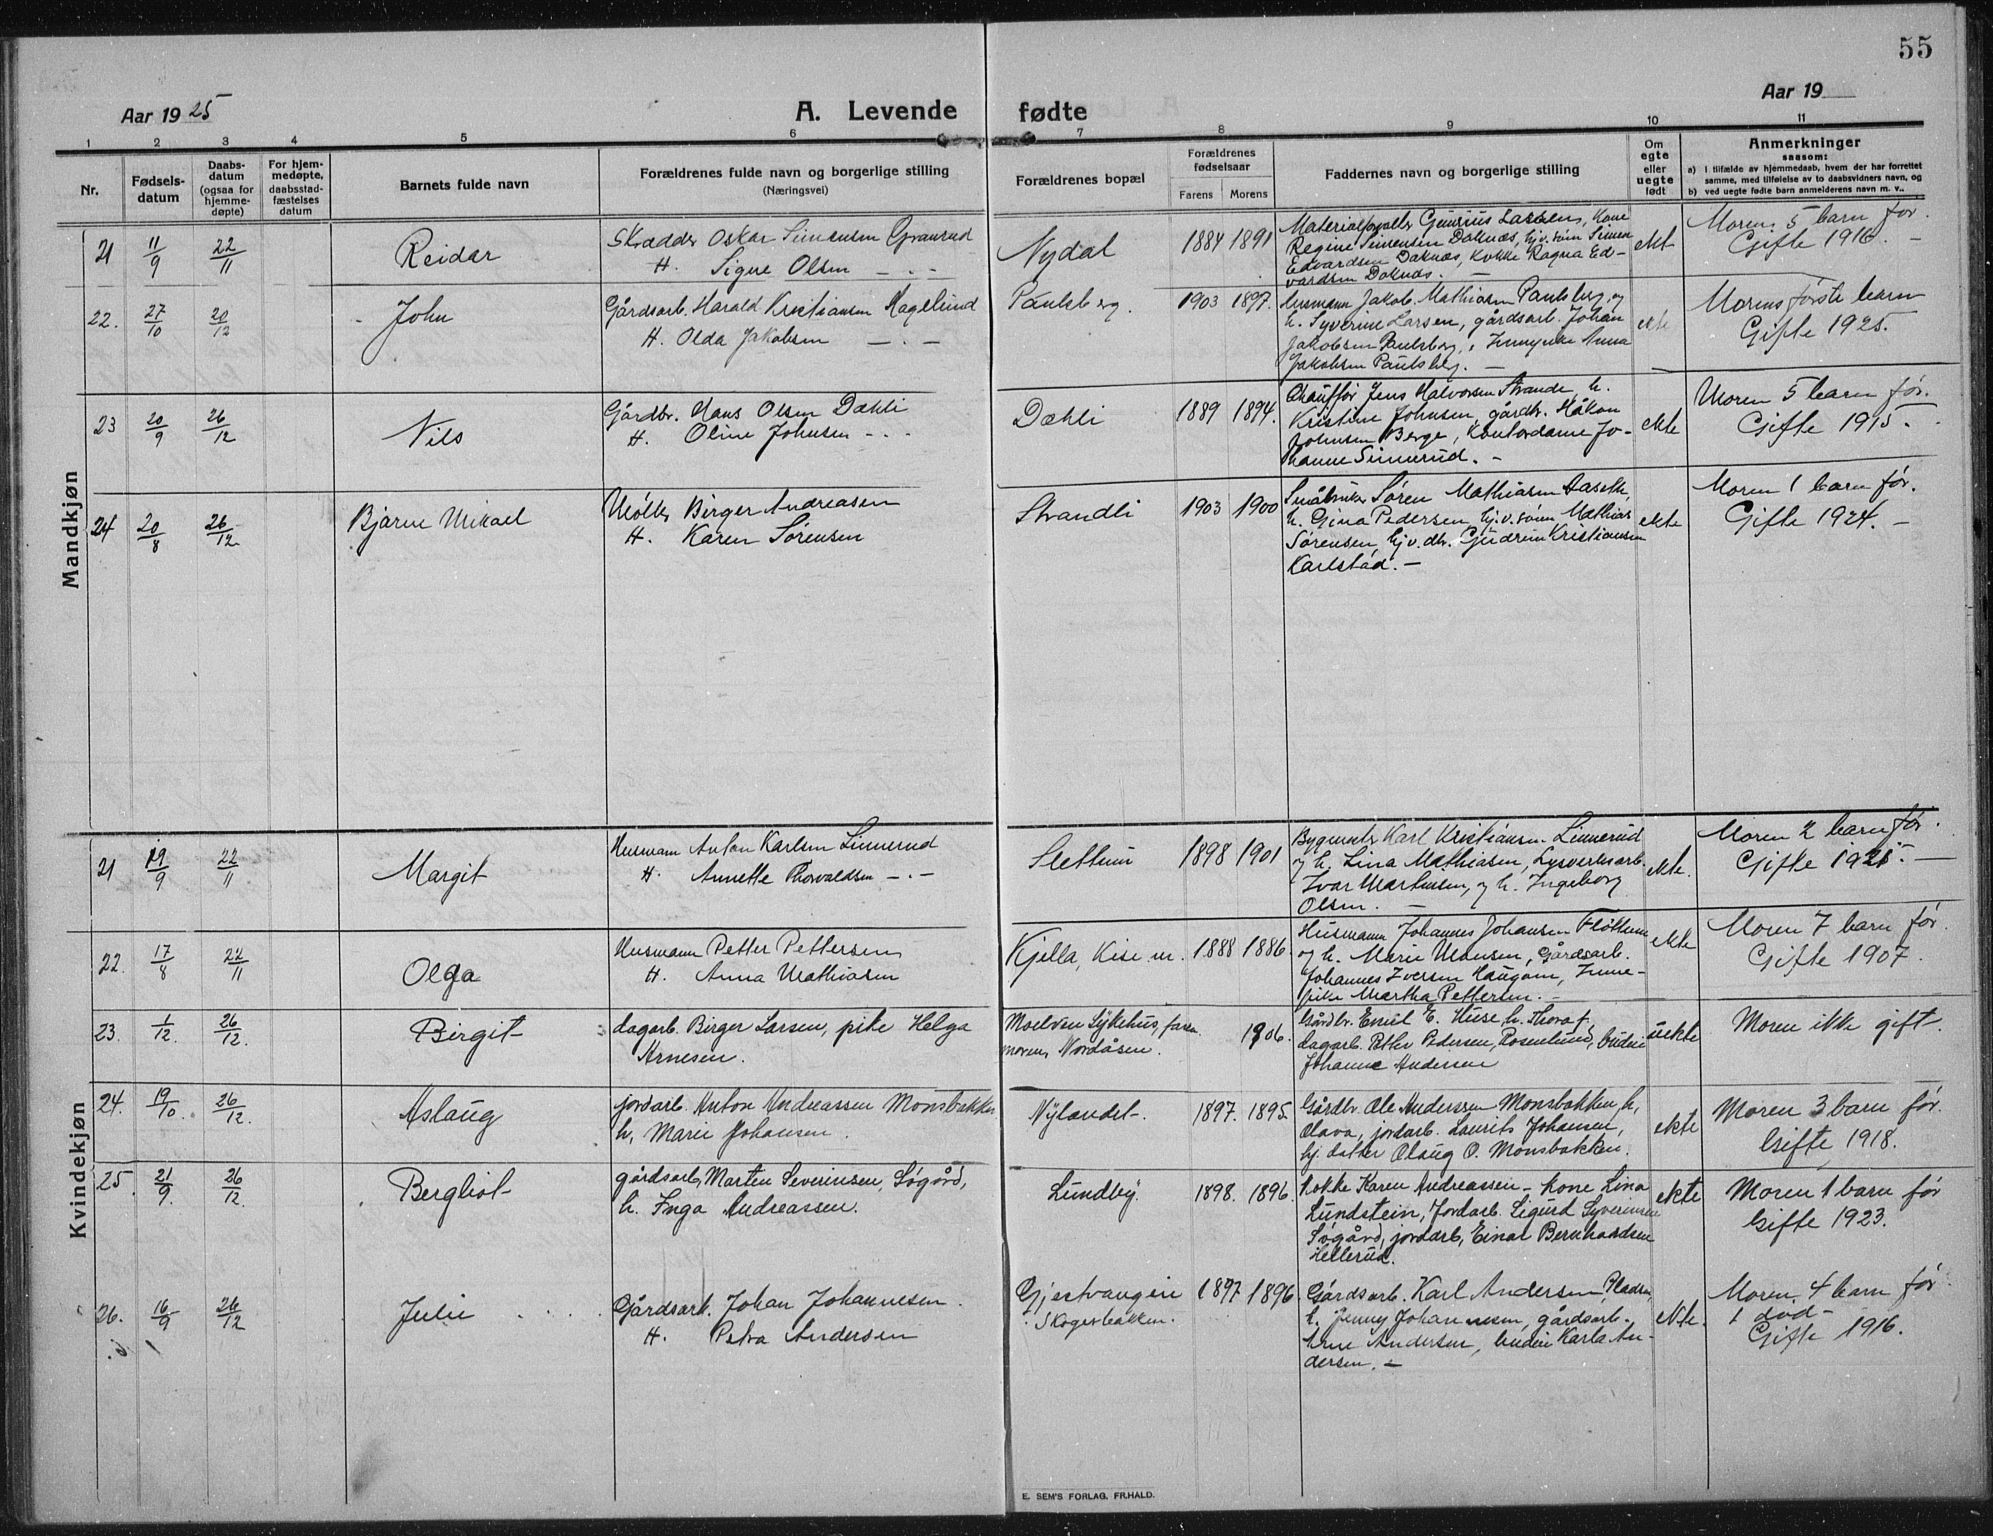 55
Aar 1925
A. Levende fødte
Aar 19
1 2 3 4 5 6 7 8 9 10 11
Nr.
Fødsels-
datum
Daabs-
datum
(ogsaa for
hjemme-
døpte)
For hjem-
medøpte,
daabsstad-
fæstelses
datum
Barnets fulde navn
Forældrenes fulde navn og borgerlige stilling
(Næringsvei)
Forældrenes bopæl
Forældrenes
fødselsaar
Farens Morens
Faddernes navn og borgerlige stilling
Om
egte
eller
uegte
født
Anmerkninger
saasom:
a) I tilfælde av hjemmedaab, hvem der har forrettet
samme, med tilføielse av to daabsvidners navn, og
b) ved uegte fødte barn anmelderens navn m. v..
Mandkjøn
21 11/9 22/11 Reidar
Skrædder Oskar Simensen Granrud
H. Signe Olsen — . —
Nydal 1884 1891
Lassen, Kone
Regine Simensen Doknæs, hjv. søn Simen
Edvardsen Doknæs, Kokke Ragna Ed-
vardsen Doknæs. —
ekt
Moren 5 barn før.
Gifte 1916. —
22. 27/10 20/12 John
Gårdsarb. Harald Kristiansen Hagelund
H. Olda Jakobsen — . —
Paulsberg. 1903 1897.
Husmann Jakob Mathiasen Paulsberg og
h. Syverine Larsen, gårdsarb. Johan
Jakobsen Paulsberg, Anna
Jakobsen Paulsberg. —
ekte
Morens første barn
Gifte 1925.
23 20/9 26/12 Nils
Gårdbr. Hans Olsen Dæhli
H. Oline Johnsen — . .
Dæhli 1889 1894.
Chauffør Jens Halvorsen Strande, h.
Kristine Johnsen, gårdbr. Håkon
Johnsen Berge, Kontordame Jo-
hanne Simmerud. —
ekte
Moren 5 barn før.
Gifte 1915.
24 20/8 26/12 Bjarne Mikael
Møller Birger Andreasen
H. Karen Sørensen
Strandli 1903 1900
Småbruker Søren Mathiasen Aaseth,
h. Gina Pedersen, hjv. søn Mathias
Sørensen, hjv. dtr. Gudrun Kristiansen
Karlstad. —
ekte
Moren 1 barn før.
Gifte 1924. —
Kvindekjøn
21 19/9 22/11 Margit
Husmann Anton Karlsen Linnerud
H. Annette Thorvaldsen — . —
Slettum 1898 1901
Bygmestr. Karl Kristiansen Linnerud
og h. Lina Mathiasen, Lysverksarb.
Ivar Martinsen, og h. Ingeborg
Olsen. —
ekte.
Moren 2 barn før.
Gifte 1921. —
22. 17/8 22/11 Olga
Husmann Petter Pettersen
H. Anna Mathiasen
Kjella, Kise m. 1888 1886.
Husmann Johannes Johansen Fløttum
og h. Marie Monsen, Gårdsarb.
Johannes Iversen Haugom, Inne-
pike Martha Pettersen. —
ekte
Moren 7 barn før
Gifte 1907.
23. 1/12. 26/12. Birgit
dagarb. Birger Larsen, pike Helga
Arnesen.
Moelven Sykehus, faren
moren, Nordåsen. 1906.
Gårdbr. Emil E. Huse h. Thora f.
dagarb. Petter Pedersen, Rosenlund, budeie
Johanne Andersen
uekte
Moren ikke gift.
24. 19/10. 26/12. Aslaug
jordarb. Anton Andreassen Monsbakken
h. Marie Johansen.
Nylandet. 1897. 1895
Gårdbr. Ole Anderssen Monsbakken, h.
Olava, jordarb. Laurits Johansen,
hj. datter Olaug O. Monsbakken.
ekte
Moren 3 barn før.
Gifte, 1918.
25. 21/9. 26/12. Bergliot
gårdsarb, Marten Severinsen, Søgård,
h. Inga Andreassen.
Lundby. 1898. 1896.
Kokke Karen Andreassen — Kone Lina
Lundstein, Jordarb. Sigurd Syverinsen
Søgård, jordarb, Einar Bernhardsen
Hellerud.
ekte
Moren 1 barn før
Gifte 1923.
26. 16/9 26/12 Julie
Gårdsarb. Johan Johannesen.
H. Petra Andersen
Gjestvangen
Skogerbakken. 1897 1896.
Gårdsarb. Karl Andersen Pladsen,
h. Jenny Johannesen, gårdsarb.
Arne Andersen, budeie Karla An-
dersen. —
ekte.
Moren 4 barn før
1 död—
Gifte 1916.
E. SEM'S FORLAG, FR.HALD.